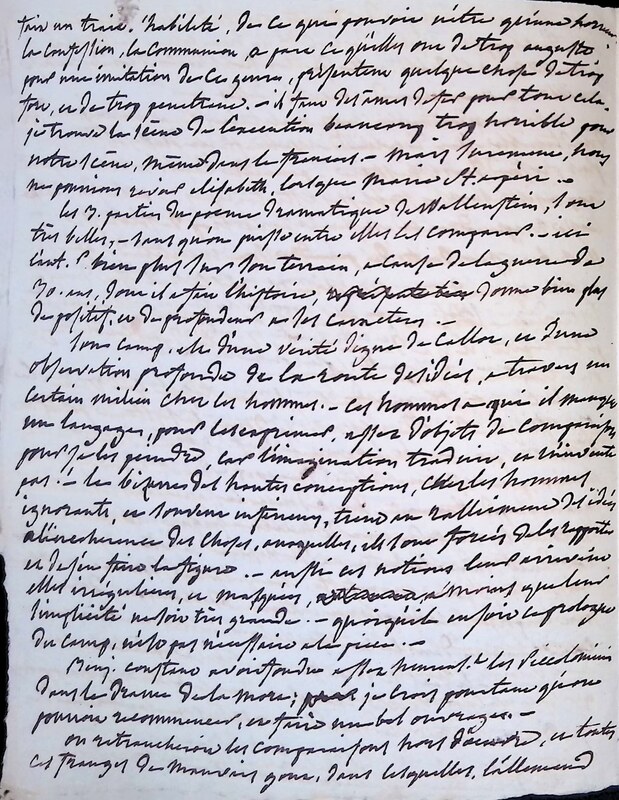 fait un trait d'habilité, de ce qui pouvoit n'être qu'une horreur
la confession, la communion, a part ce qu'elles ont de trop auguste
pour une imitation de ce genre, présentent quelque chose de trop
fort, et de trop penetrant. - il faut des ames de fer pour tout cela.
je trouve la scène de l'execution beaucoup trop horrible pour
notre scène, même dans le francois. - mais surement, nous
ne pourrions revoir elisabeth, lorsque marie St. a péri. -
les 3. parties du poeme dramatique de Wallenstein, sont
très belles, - sans qu'on puisse entre elles les comparer. - ici
l'aut. r bien plus sur son terrain, a cause de la guerre de
30. ans, dont il a fait l'histoire, donne bien plus
de positif, et de profondeur a ses caracteres. -
Son camp, est d'une vérité digne de Callot, et d'une
observation profonde de la route des idées, a travers un
certain milieu chez les hommes. - ces hommes a qui il manque
un langage, pour les exprimer, assez d'objets de comparaison
pour se les peindre, car l'imagination traduit, et n'invente
pas! - le bizarre des hautes conceptions, chez les hommes
ignorants, et souvent inferieurs, tient au ralliement des idées
a l'incoherence des choses, auxquelles, ils sont forcés de les rapporter
et de s'en faire la figure. - aussi ces notions leur arrivent
elles irrégulières, et masquées, a moins que leur
simplicité ne soit très grande. - quoiqu'il en soit ce prologue
du camp, n'est pas nécessaire a la piece. -
Benj. constant avoit fondu assez heureus.t les Piccolomini
dans le drame de la mort; je crois pourtant qu'on
pourroit recommencer, et faire un bel ouvrage. -
on retrancheroit les comparaisons hors d'oeuvre, et toutes
ces franges de mauvais gout, dans lesquelles, l'allemand